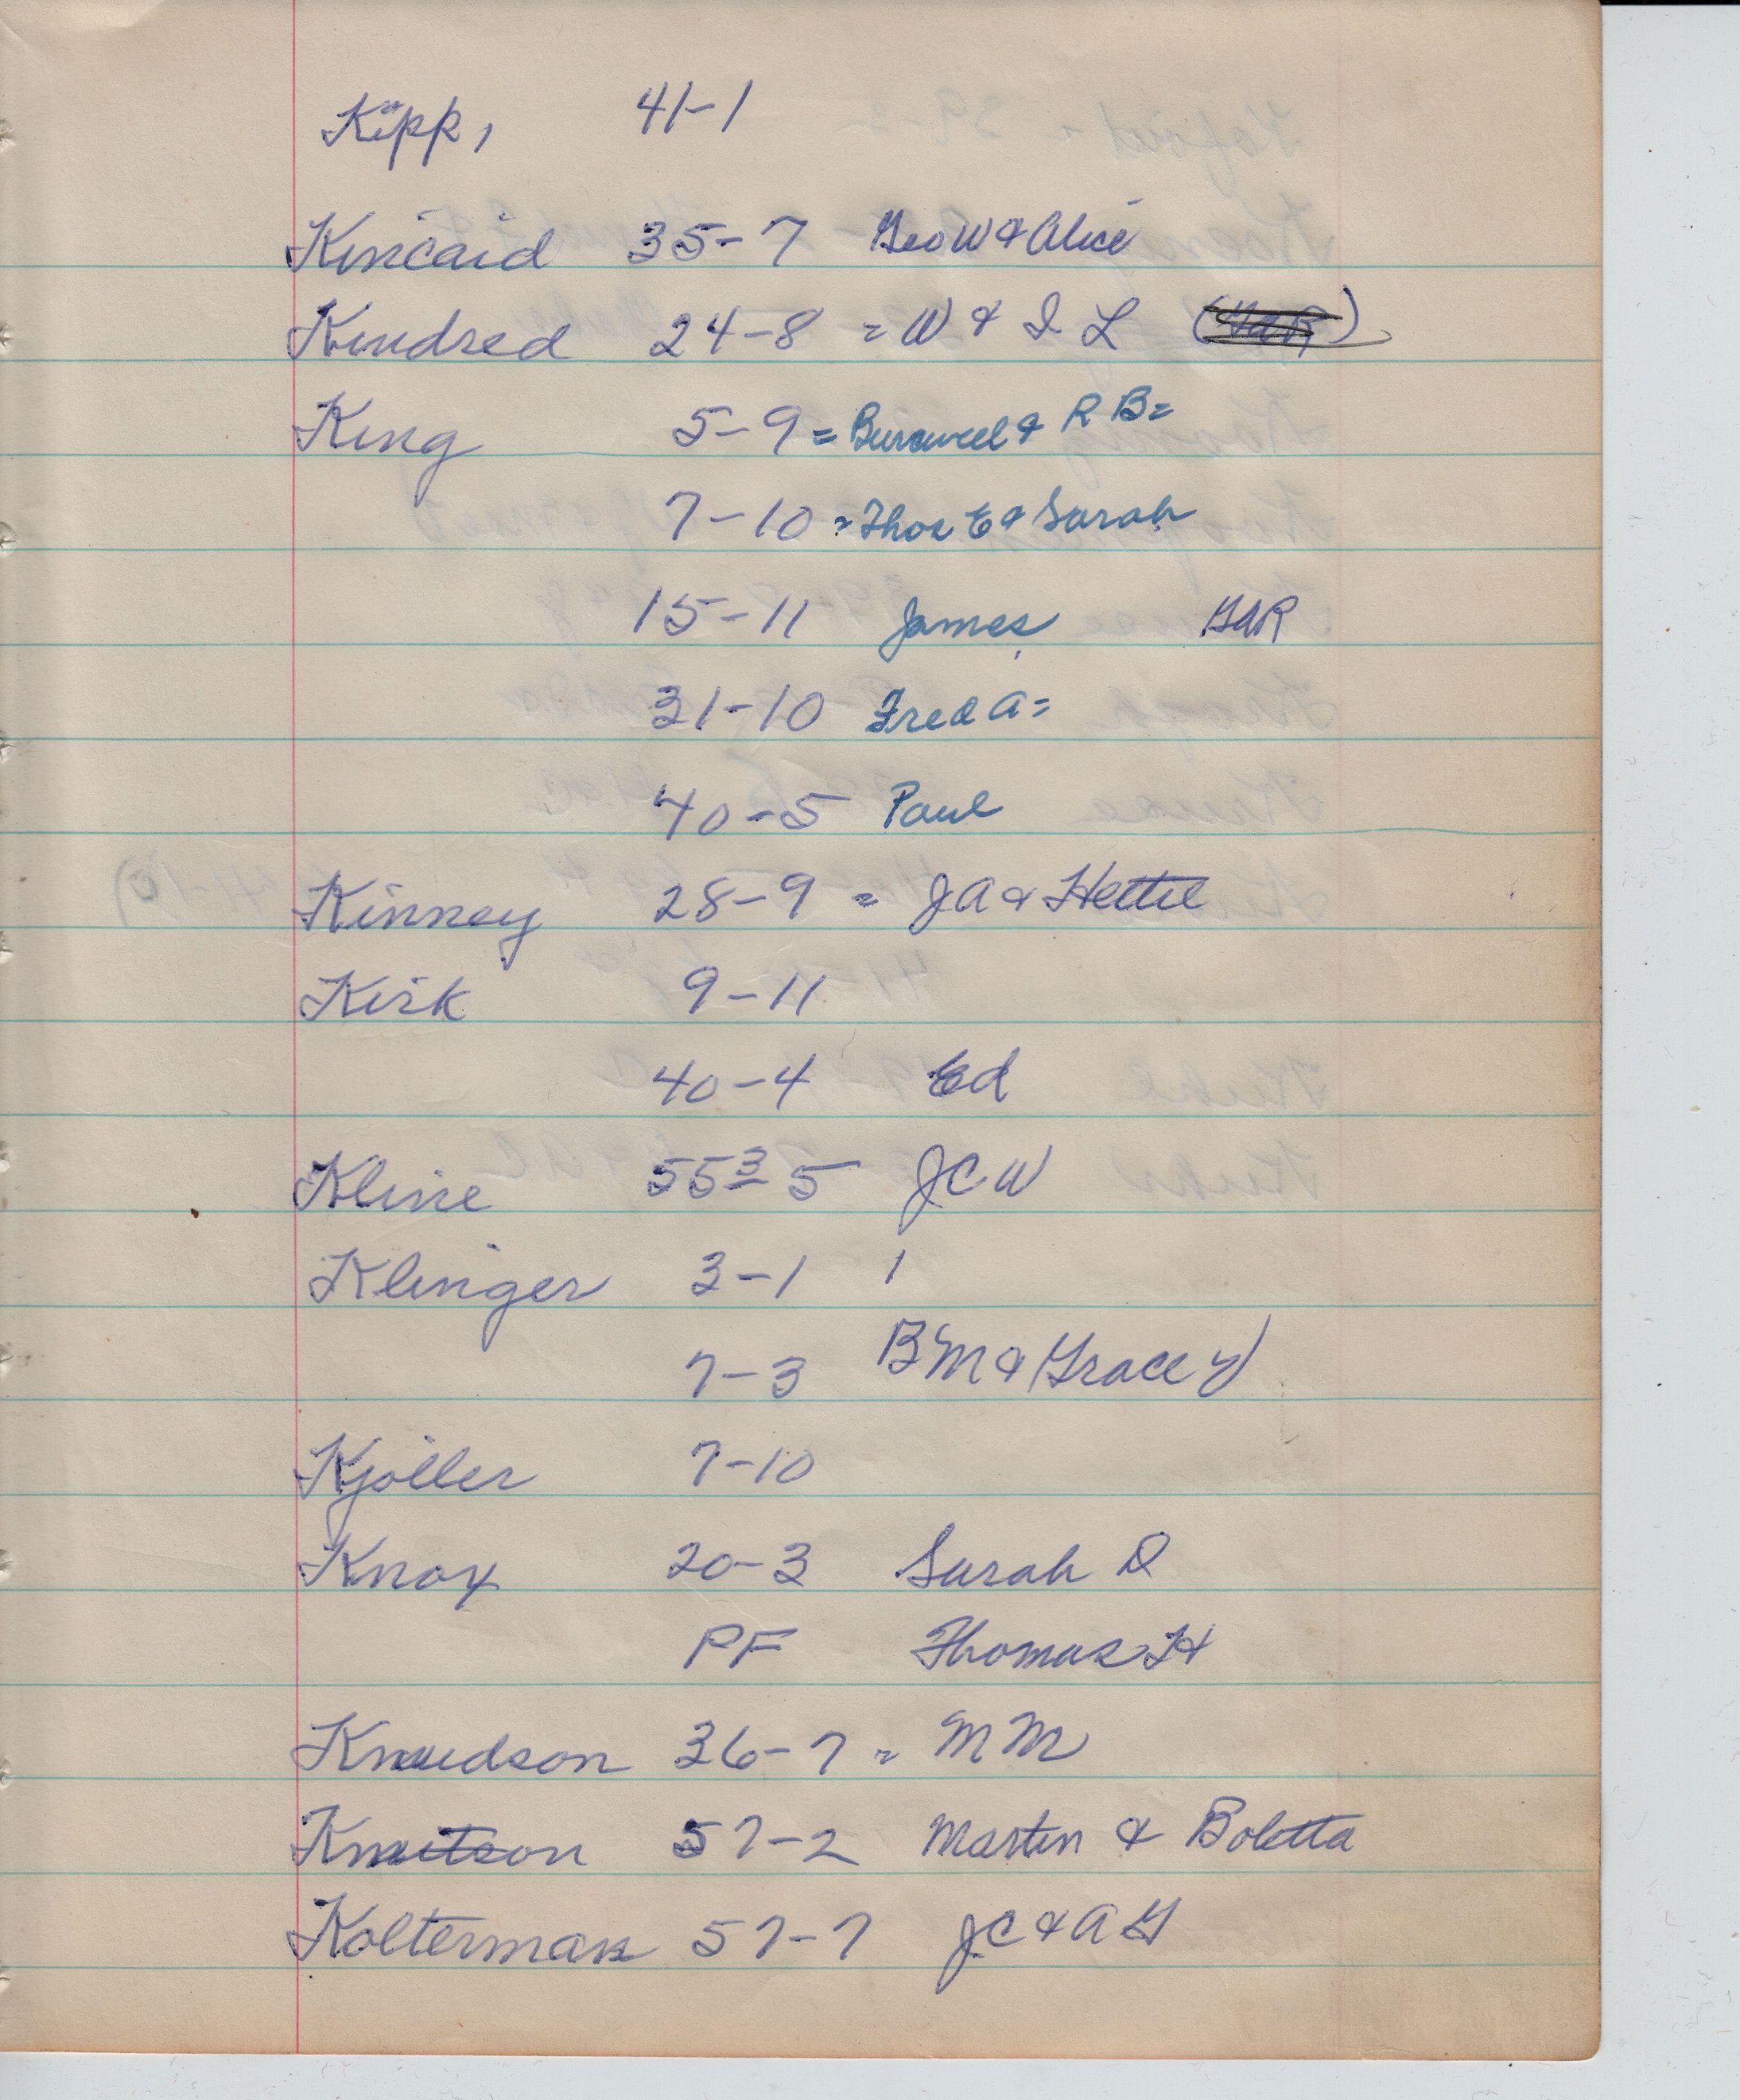 Kipp, 41-1
Kincaid 35-7 Geo W & Alice
Kindred 24-8 = W & I L (GAR)
King 5-9 = Burwell & R B=
7-10 = Thos E & Sarah
15-11 James GAR
31-10 Fred A=
40-5 Paul
Kinney 28-9 = J A & Hettie
Kirk 9-11
40-4 Ed
Kline 55 3 5 J C W
Klinger 3-1 1
7-3 B M & (Grace Y)
Kjoller 7-10
Knox 20-3 Sarah D
PF Thomas H
Knudson 36-7 = M M
Knutson 57-2 Martin & Boletta
Kolterman 57-7 J C & A G